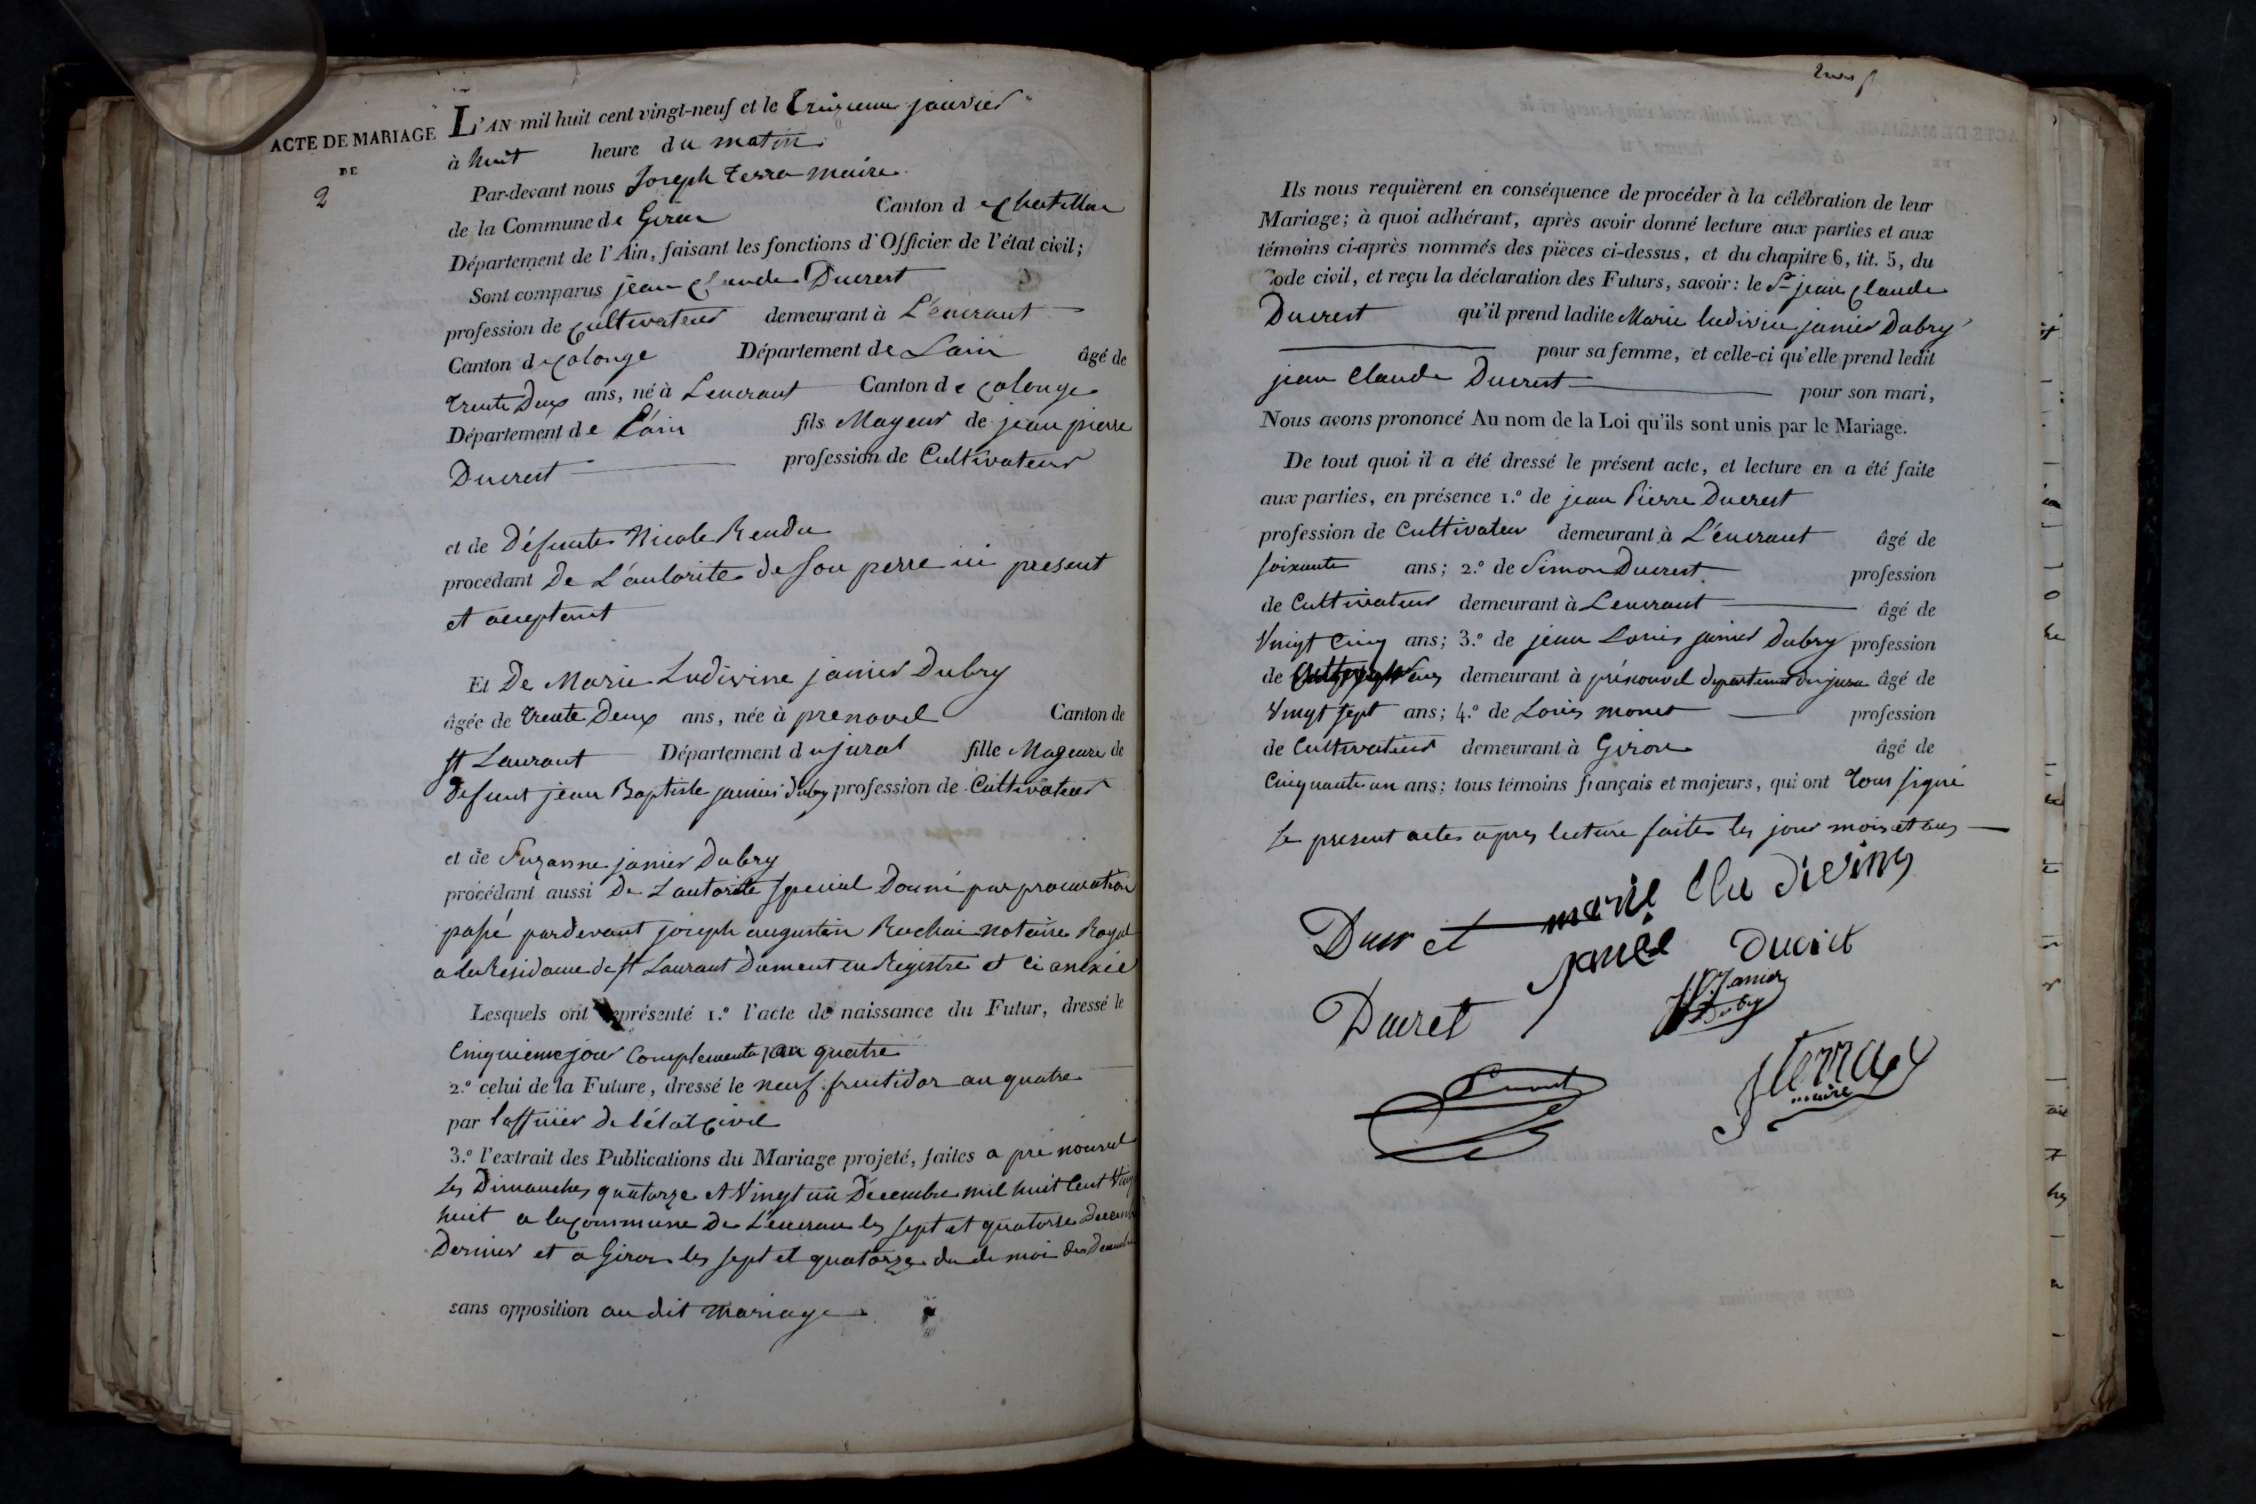 ACTE DE MARIAGE
DE
2
L'AN mil huit cent vingt-neuf et le treizieme janvier
à huit heure du matin
Par-devant nous Joseph Terra maire
de la Commune de Giron Canton de Chatillon
Département de l'Ain, faisant les fonctions d'Officier de l'état civil;
Sont comparus jean claude Ducrest
profession de Cultivateur demeurant à L'éncrant
Canton de Colonge Département de Lain âgé de
trente Deux ans, né à Lencrant Canton de Colonge
Département de L'ain fils Mageur de jean pierre
Ducrest profession de Cultivateur
et de Défunte Nicole Rendu
procédant De L'autorite de son perre ici present
et acceptent
Et De Marie Ludivine janier Dubry
âgée de trente Deux ans, née à prenovel Canton de
st Laurant Département du jurat fille Mageure de
Defunt jean Baptiste janier dubry profession de Cultivateur
et de Suzanne janier Dubry
procédant aussi De Lautorité special Donné par procuration
passé pardevant joseph augustin notaire Royal
a la Residance de st Laurant Dument en Registré et ci anexée
Lesquels ont représenté 1.º l'acte de naissance du Futur, dressé le
Cinquieme jour Complementa an quatre
2.º celui de la Future, dressé le neuf fructidor an quatre
par loffitier de létat Civil
3.º l'extrait des Publications du Mariage projeté, faites a pré nouvel
Les Dimanches quatorze et Vingt un Décembre mil huit Cent Vingt
huit a la Commune De L'encran les sept et quatorse Decemb
Dernier et a Giron les sept et quatorze du de moi de Decembre
sans opposition au dit mariage
Ils nous requièrent en conséquence de procéder à la célébration de leur
Mariage; à quoi adhérant, après avoir donné lecture aux parties et aux
témoins ci-après nommés des pièces ci-dessus, et du chapitre 6, tit. 5, du
Code civil, et reçu la déclaration des Futurs, savoir: le Sr jean Claude
Ducrest qu'il prend ladite Marie ludivine janier Dubry
pour sa femme, et celle-ci qu'elle prend ledit
jean Claude Ducrest pour son mari,
Nous avons prononcé Au nom de la Loi qu'ils sont unis par le Mariage.
De tout quoi il a été dressé le présent acte, et lecture en a été faite
aux parties, en présence 1.º de jean Pierre Ducrest
profession de Cultivateur demeurant à L'éncrant âgé de
soixante ans; 2.º de Simon Ducrest profession
de Cultivateur demeurant à Lencrant âgé de
Vingt Cinq ans; 3.º de jean Louis janier Dubry profession
de demeurant à prénouvel departement du jura âgé de
Vingt sept ans; 4.º de Louis monet profession
de Cultivateur demeurant à Giron âgé de
Cinquante un ans; tous témoins français et majeurs, qui ont tous signé
le present acte apres lecture faite les jour mois et ans
Ducret marie
Ducret
Ducret
Janier
Dubry
Terra
maire